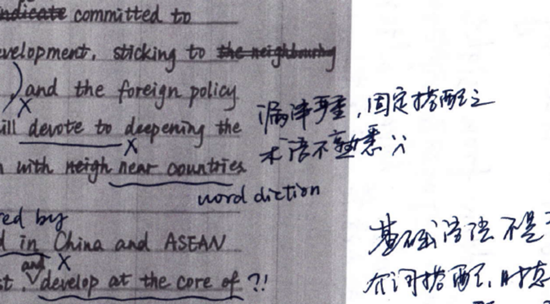 committed to
evelopment, sticking to the neighbouring
, and the foreign policy
漏译严重,固定搭配之
ill devote to deepening the
术语不熟悉
n with neigh near countries
word diction
red by
d in China and ASEAN
基础语法不足
and
st. develop at the core of ?!
介词搭配、时态